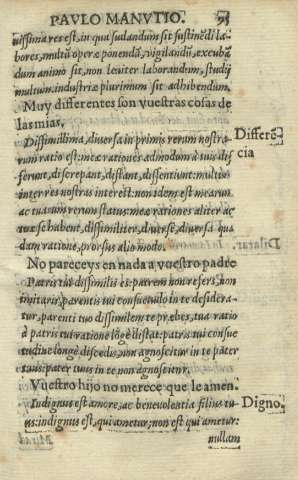 PAVLO MANVTIO. 95
uissima res est, in qua sudandum sit sustinēdi la-
bores, multū operæ ponendū, vigilandū, excubā
dum animo sit, non leuiter laborandum, studij
multum. industriæ plurimum sit adhibendum.
Muy differentes son vuestras cosas de
las mias.
Dissimillima, diuersa in primis rerum nostra-
rum ratio est: meæ rationes admodum à tuis dif
ferunt, discrepant, distant, dissentiunt: multū
inter res nostras interest: non idem est mearum
ac tuarum rerum status: meæ rationes aliter ac
tuæ se habent, dissimiliter, diuersè, diuersa qua
dam ratione, prorsus alio modo.
Differē
cia
Dilatar.
No pareceys en nada a vuestro padre
Patris tui dissimilis es: patrem non refers, non
imitaris, parentis tui consuetudo in te desidera-
tur, parenti tuo dissimilem te præbes, tua ratio
à patris tui ratione lōgè distat: patris tui consue
tudine longè discedis, non agnoscitur in te pater
tuus: pater tuus in te non agnoscitur.
Vuestro hijo no merece que le amen.
Indignus est amore, ac beneuolentia filius tu-
us: indignus est, qui ametur: non est qui ametur:
Digno.
nullam